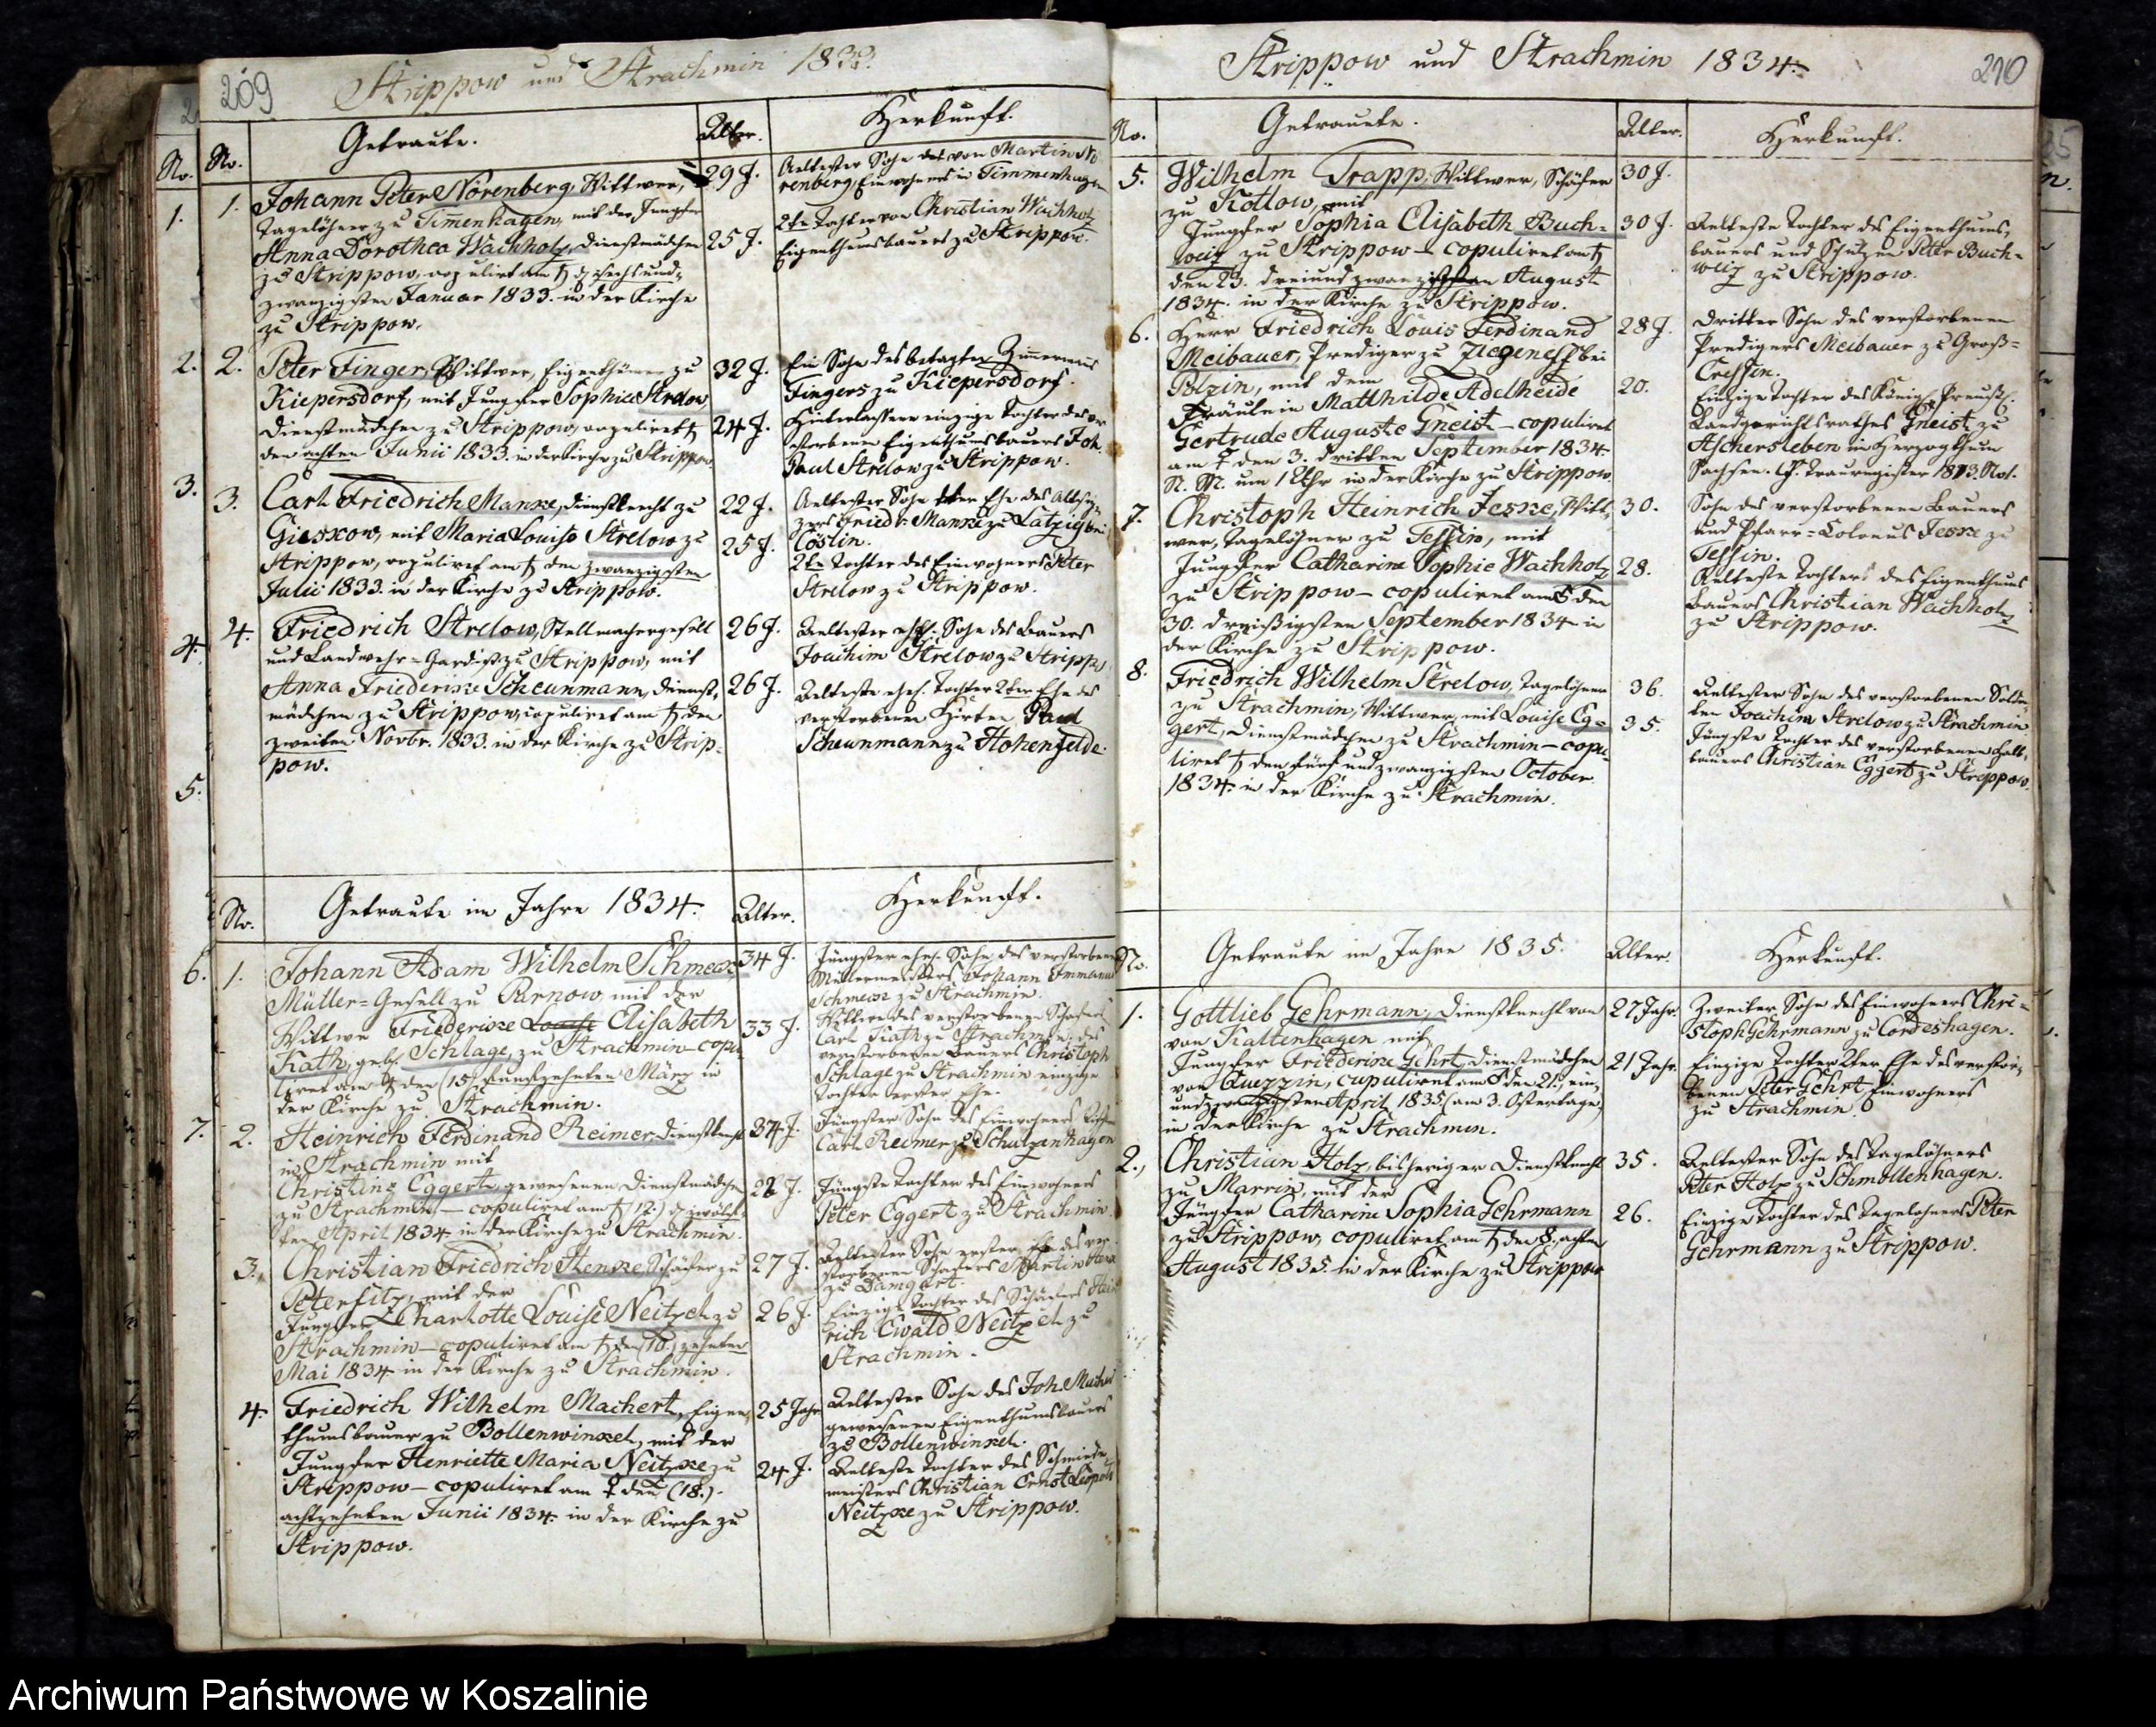 209
Strippow und Strachmin 1833.
No. Getraute. Alter. Herkunft.
1. Johann Peter Nörenberg, Wittwer, 29 J.
Tagelöhner zu Timenhagen, mit der Jungfer
Anna Dorothea Wachholz, Dienstmädchen 25 J.
zu Strippow, copulirt am ♄ d. sechs und
zwanzigsten Januar 1833. in der Kirche
zu Strippow.
Aeltester Sohn des von Martin Nö-
renberg, Einwohners in Timmenhagen
2te Tochter von Christian Wachholz
Eigenthumsbauers zu Strippow.
2. Peter Finger, Wittwer, Eigenthümer zu 32 J.
Kiepersdorf, mit Jungfer Sophia Strelow
Dienstmädchen zu Strippow, copuliret ♄ 24 J.
den achten Junii 1833. in der Kirche zu Strippow.
Ein Sohn des betagten Zimmermanns
Fingers zu Kiepersdorf.
Hinterlassene einzige Tochter des ver
storbenen Eigenthumsbauers Joh.
Paul Strelow zu Strippow.
3. Carl Friedrich Manke, Dienstknecht zu 22 J.
Gieskow, mit Maria Louise Strelow zu 25 J.
Strippow, copuliret am ♄ den zwanzigsten
Julii 1833. in der Kirche zu Strippow.
Aeltester Sohn 1ter Ehe des Altsitz-
zers Friedr. Manke zu Latzig bei
Cöslin.
2te Tochter des Einwohners Peter
Strelow zu Strippow.
4. Friedrich Strelow, Stellmachergesell 26 J.
und Landwehr-Gardist zu Strippow, mit
Anna Friederike Scheunmann, Dienst- 26 J.
mädchen zu Strippow, copuliret am ♄ den
zweiten Novbr. 1833. in der Kirche zu Strip-
pow.
Aeltester ehel. Sohn des Bauers
Joachim Strelow zu Strippow
Aelteste ehel. Tochter 2ter Ehe des
verstorbenen Hirten Paul
Scheunmann zu Hohenfelde.
No. Getraute im Jahre 1834. Alter. Herkunft.
1. Johann Adam Wilhelm Schmeck, 34 J.
Müller-Gesell zu Parnow mit der
Wittwe Friederike Louise Elisabeth 33 J.
Kath, geb. Schlage, zu Strachmin – copu
liret am den (15) funfzehnten März in
der Kirche zu Strachmin.
Jüngster ehel. Sohn des verstorbenen
Müllermeisters Johann Immanuel
zu Strachmin.
Wittwe des verstorbenen Schäfers
Carl Kath zu Strachmin, des
verstorbenen Bauers Christoph
Schlage zu Strachmin einzige
Tochter erster Ehe.
2. Heinrich Ferdinand Reimer, Dienstknecht 34 J.
in Strachmin mit
Christine Eggert, gewesenen Dienstmädchen 22 J.
zu Strachmin – copuliret am ♄ (12.) d. zwölf-
ten April 1834 in der Kirche zu Strachmin.
Jüngster Sohn des Einwohners
Carl Reimer zu Schulzenhagen
Jüngste Tochter des Einwohners
Peter Eggert zu Strachmin.
3. Christian Friedrich Henke, Schäfer zu 27 J.
Peterfitz, mit der
Jungfer Charlotte Louise Neitzel zu 26 J.
Strachmin – copuliret am ♄ den (10.) zehnten
Mai 1834 in der Kirche zu Strachmin.
Aeltester Sohn erster Ehe des ver
storbenen Schäfers Martin
zu Damgart.
Einzige Tochter des Schäfers Hein
rich Ewald Neitzel zu
Strachmin.
4. Friedrich Wilhelm Machert, Eigen- 25 Jahr
thumsbauer zu Bollenwinkel, mit der
Jungfer Henriette Maria Neitzke zu 24 J.
Strippow – copuliret am ☿ den (18.)
achtzehnten Junii 1834. in der Kirche zu
Strippow.
Aeltester Sohn des Joh. Machert
gewesenen Eigenthumsbauers
zu Bollenwinkel.
Aelteste Tochter des Schmiede-
meisters Christian Ernst Leopold
Neitzke zu Strippow.
Strippow und Strachmin 1834. 210
No. Getraute. Alter. Herkunft.
5. Wilhelm Trapp, Wittwer, Schäfer 30 J.
zu Kotlow, mit
Jungfer Sophia Elisabeth Buch- 30 J.
weitz zu Strippow – copuliret am ♄
den 23. dreiundzwanzigsten August
1834. in der Kirche zu Strippow.
Aelteste Tochter des Eigenthums-
bauers und Schulzen Peter Buch-
weitz zu Strippow.
6. Herr Friedrich Louis Ferdinand 28 J.
Meibauer, Prediger zu Ziegeneff bei
Polzin, mit dem
Fräulein Matthilde Adelheide 20.
Gertrude Auguste Gneist – copuliret
am ☿ den 3. dritten September 1834
N. M. um 1 Uhr in der Kirche zu Strippow
Dritter Sohn des verstorbenen
Predigers Meibauer zu Groß-
Cressin.
Einzige Tochter des Königl. Preuß.
Landgerichtsrathes Gneist zu
Aschersleben im Herzogthum
Sachsen. Cf. Trauregister 1813. No 1.
7. Christoph Heinrich Jeske, Witt- 30.
wer, Tagelöhner zu Tessin, mit
Jungfer Catharine Sophie Wachholz 28.
zu Strippow – copuliret am ♂ den
30. dreißigsten September 1834 in
der Kirche zu Strippow.
Sohn des verstorbenen Bauers
und Pfarr-Colonus Jeske zu
Tessin.
Aelteste Tochter des Eigenthums
Bauers Christian Wachholz
zu Strippow.
8. Friedrich Wilhelm Strelow, Tagelöhner 36.
zu Strachmin, Wittwer, mit Louise Eg- 35.
gert, Dienstmädchen zu Strachmin – copu-
liret ♄ den fünf und zwanzigsten October
1834 in der Kirche zu Strachmin.
Aeltester Sohn des verstorbenen Solda-
ten Joachim Strelow zu Strachmin
Jüngste Tochter des verstorbenen Halb-
bauers Christian Eggert zu Strippow.
No. Getraute im Jahre 1835. Alter. Herkunft.
1. Gottlieb Gehrmann, Dienstknecht von 27 Jahr.
von Kaltenhagen mit
Jungfer Friederike Gehrt, Dienstmädchen 21 Jahr.
von Quezzin, cupuliret am ♂ den 21., ein-
undzwanzigsten April 1835 (am 3. Ostertage,)
in der Kirche zu Strachmin.
Zweiter Sohn des Einwohners Chri-
stoph Gehrmann zu Cordeshagen.
Einzige Tochter 2ter Ehe des verstor-
benen Peter Gehrt Einwohners
zu Strachmin.
2. Christian Holz, bisheriger Dienstknecht 35.
zu Marrin, mit der
Jungfer Catharine Sophia Gehrmann 26.
zu Strippow, copuliret am ♄ den 8. achten
August 1835. in der Kirche zu Strippow
Aeltester Sohn des Tagelöhners
Peter Holz zu Schmollenhagen.
Einzige Tochter des Tagelöhners Peter
Gehrmann zu Strippow.
Archiwum Państwowe w Koszalinie